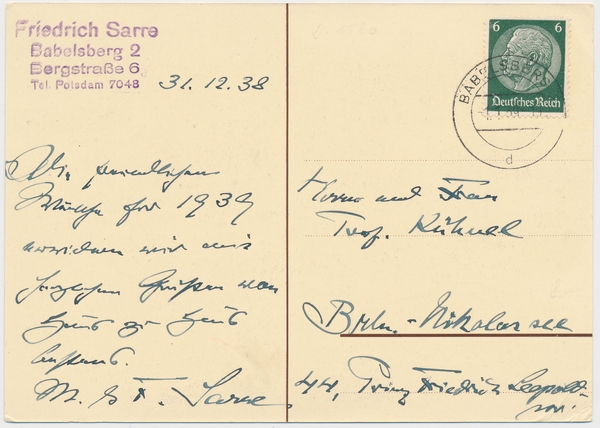 Friedrich Sarre
Babelsberg 2
Bergstraße 6
Tel. Potsdam 7048
31.12.38
Die freundlichen
Wünsche für 1939
erwidern wir mit
herzlichen Grüßen von
Haus zu Haus
bestens.
M. & F. Sarre
6 6
Deutsches Reich
BABELSBERG
d
Herrn und Frau
Prof. Kühnel
Berlin-Nikolassee
44, Prinz Friedrich Leopold-